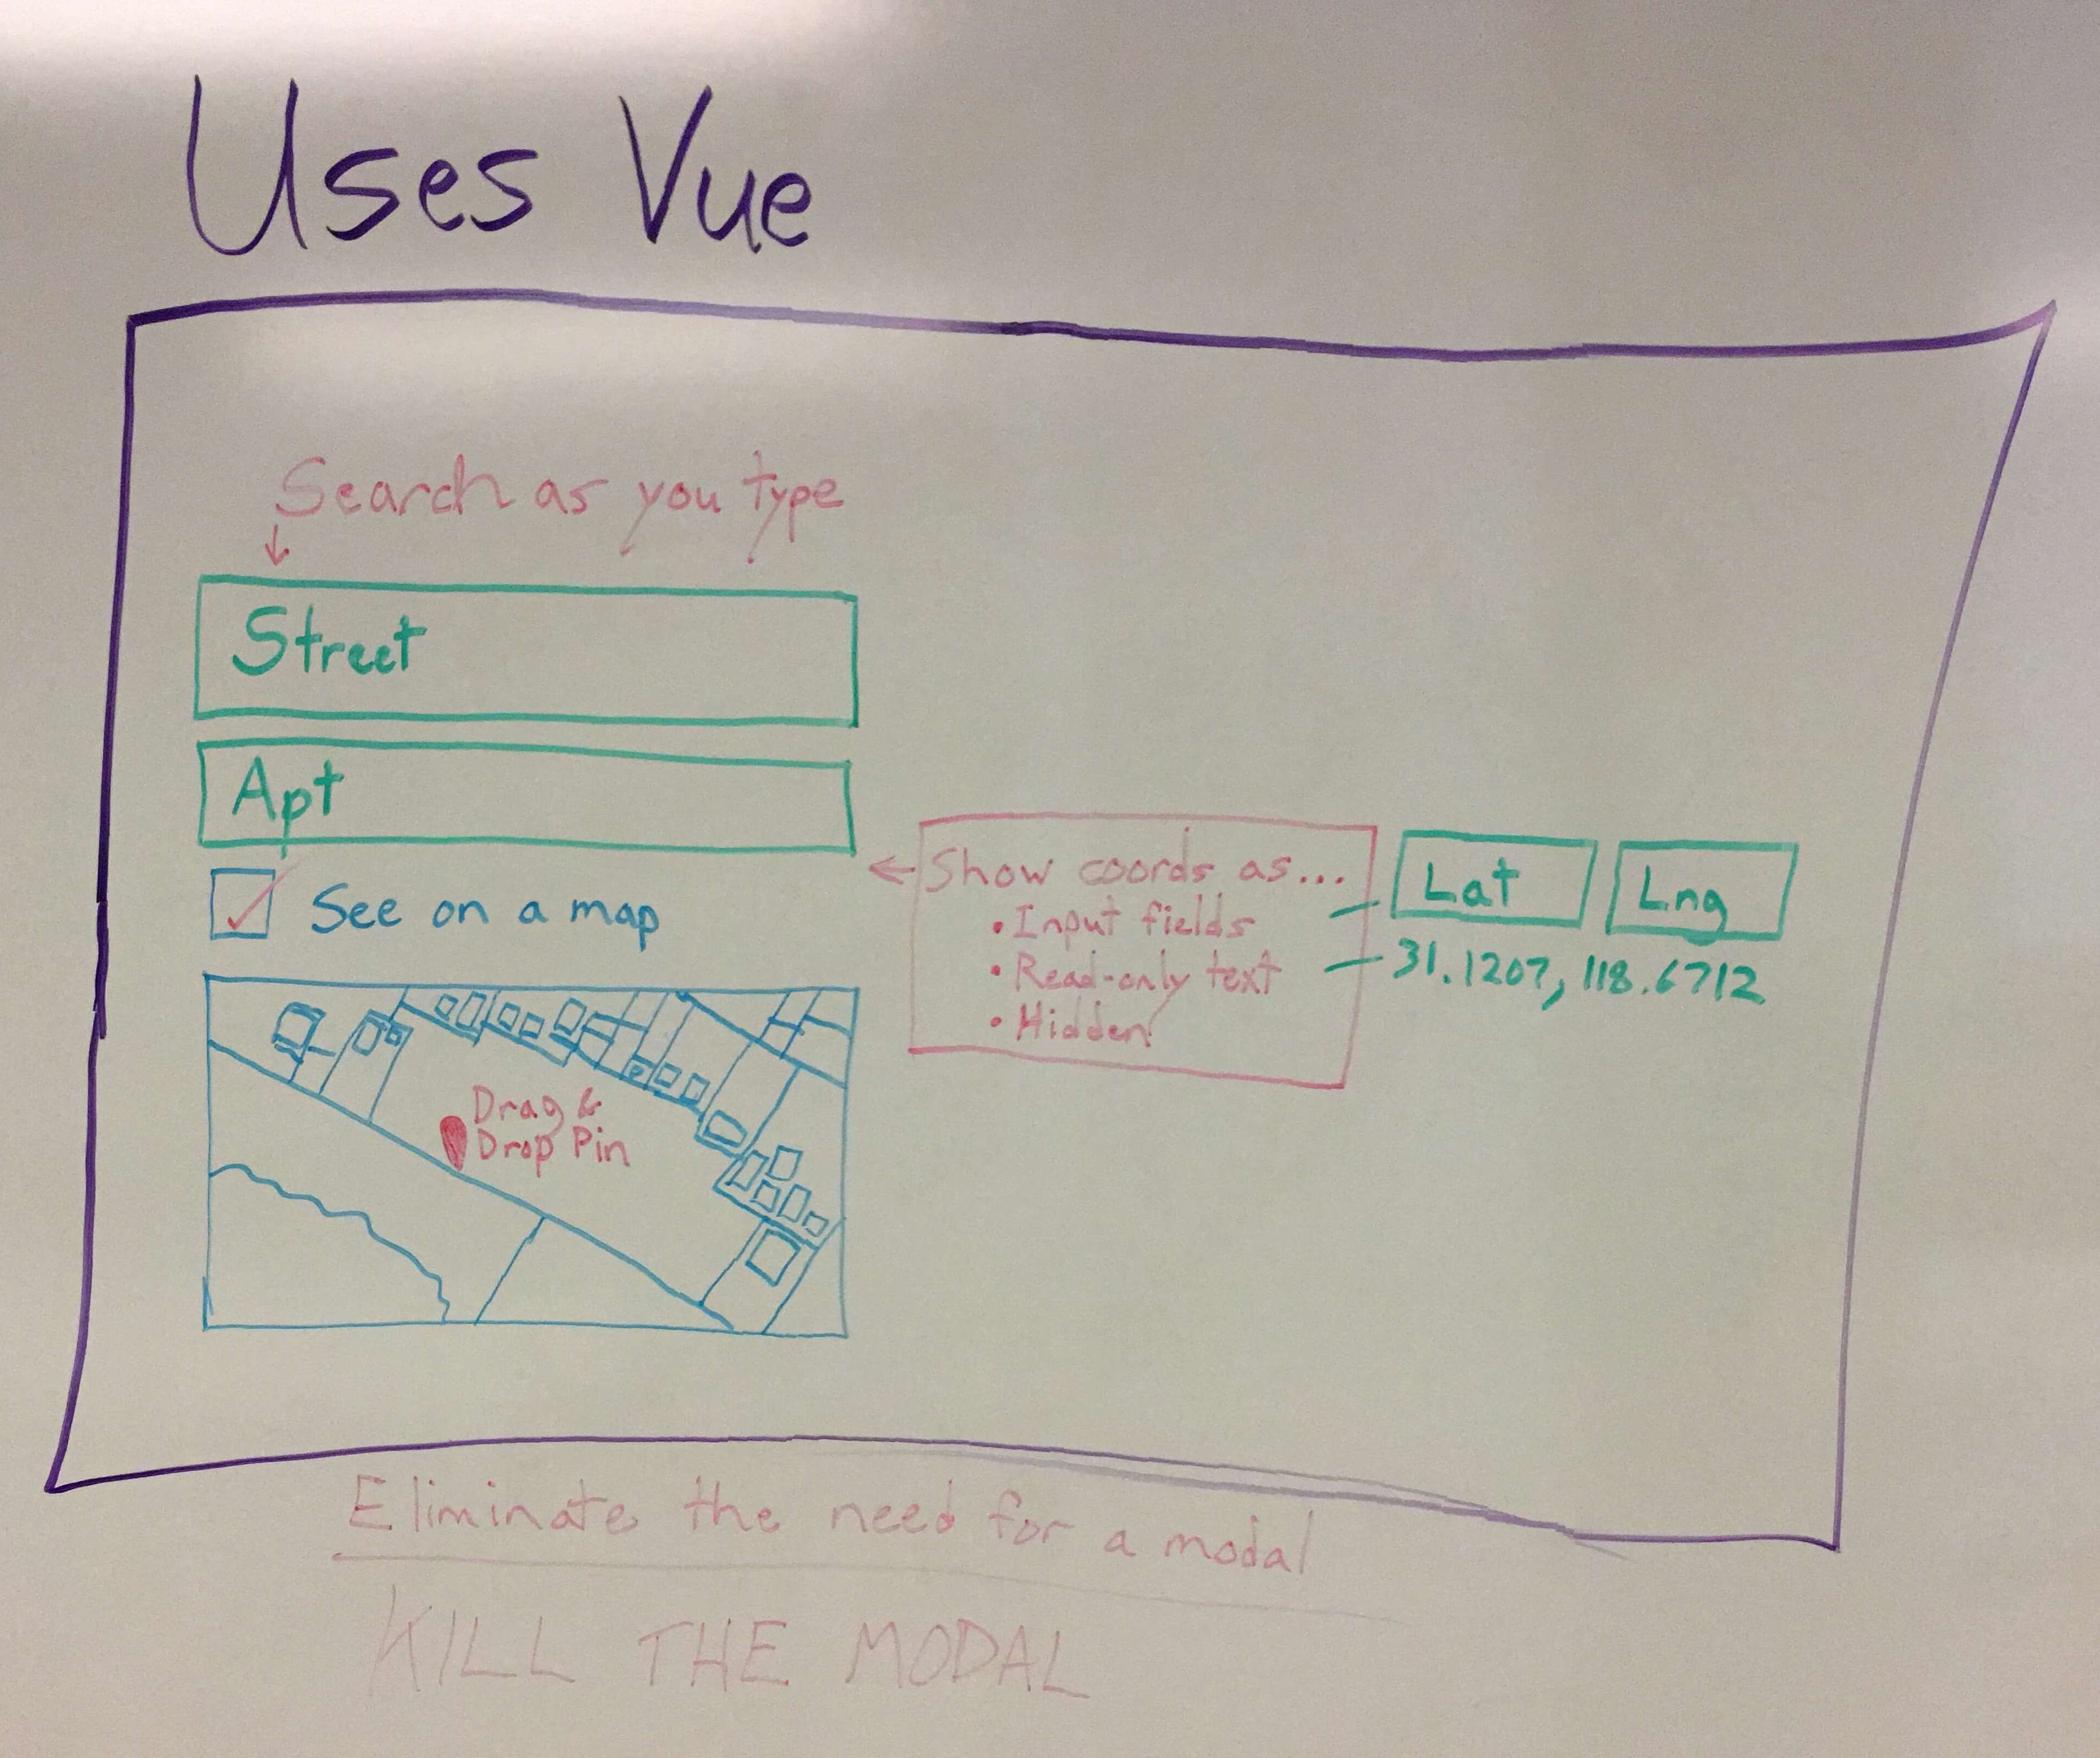 Uses Vue
Search as you type
Street
Apt
See on a map
Show coords as...
• Input fields
• Read-only text
• Hidden
Lat
Lng
31.1207, 118.6712
Drag &
Drop Pin
Eliminate the need for a modal
KILL THE MODAL